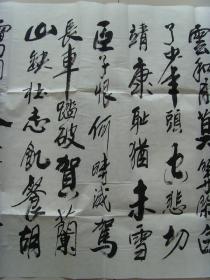 雲和月莫等閒白
了少年頭空悲切
靖康耻猶未雪
臣子恨何時滅駕
長車踏破賀蘭
山缺壮志飢餐胡